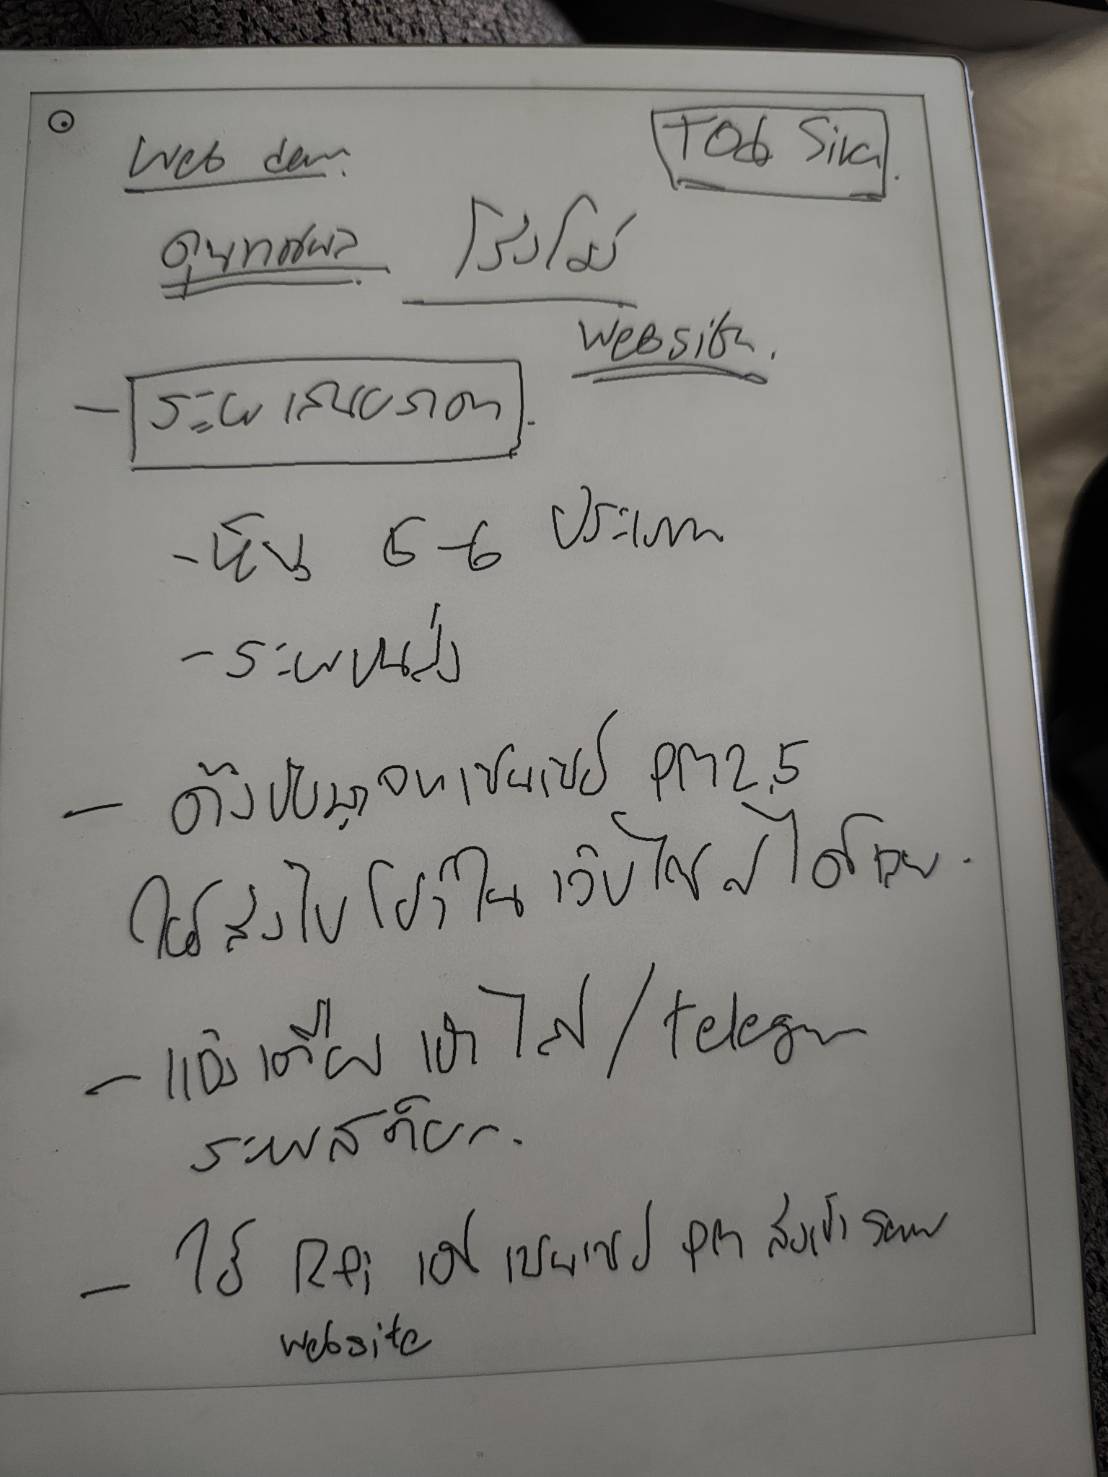 Web dev.
TOB Sila
คุณทชพล โรงโม่
Website.
- ระบบเสนอราคา.
- หิน 5-6 ประเภท
- ระบบขนส่ง
- ดึงข้อมูลจากเซนเซอร์ PM2.5
ให้ส่งไปโชว์ในเว็บไซต์ได้ด้วย.
- แจ้งเตือน เข้าไลน์ / telegram
ระบบสต๊อก.
- ใช้ RPi เซนเซอร์ PM ส่งเข้าระบบ
website